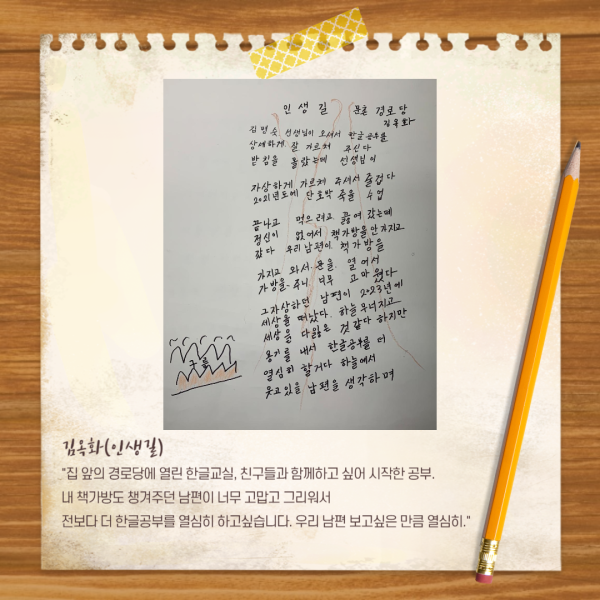 인생길 문흥 경로당
김옥화
김명숙 선생님이 오셔서 한글공부를
상세하게 잘 가르쳐 주신다
받침을 몰랐는데 선생님이
자상하게 가르쳐 주셔서 즐겁다
2021년도에 단호박 죽을 수업
끝나고 먹으려고 끓여 갔는데
정신이 없어서 책가방을 안 가지고
갔다 우리 남편이 책가방을
가지고 와서 문을 열어서
가방을 주니 너무 고마웠다
그 자상하던 남편이 2023년에
세상을 떠났다. 하늘 무너지고
세상을 다 잃은 것 같다 하지만
용기를 내서 한글공부를 더
열심히 할거다 하늘에서
웃고 있을 남편을 생각하며
김옥화(인생길)
"집 앞의 경로당에 열린 한글교실, 친구들과 함께하고 싶어 시작한 공부.
내 책가방도 챙겨주던 남편이 너무 고맙고 그리워서
전보다 더 한글공부를 열심히 하고싶습니다. 우리 남편 보고싶은 만큼 열심히."